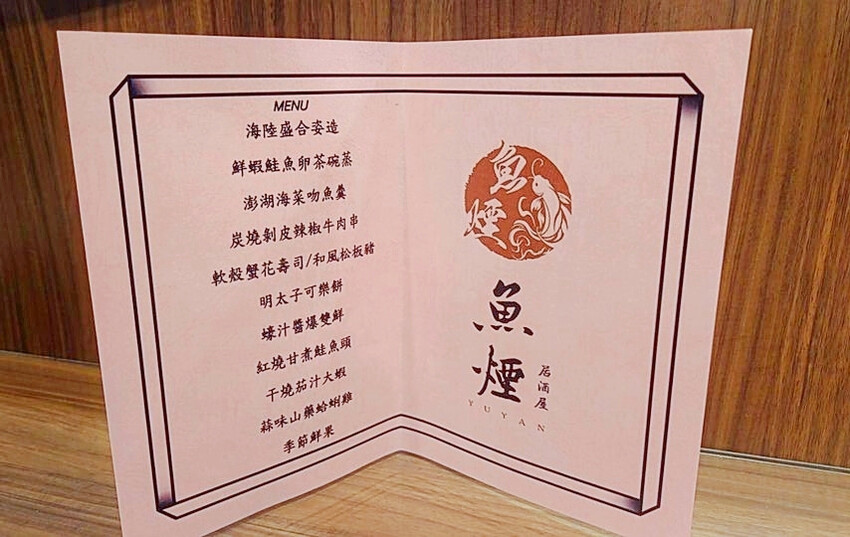 MENU
海陸盛合姿造
鮮蝦鮭魚卵茶碗蒸
澎湖海菜吻魚羹
炭燒剝皮辣椒牛肉串
軟殼蟹花壽司/和風松板豬
明太子可樂餅
蠔汁醬爆雙鮮
紅燒甘煮鮭魚頭
干燒茄汁大蝦
蒜味山藥蛤蜊雞
季節鮮果
魚煙
魚煙
居酒屋
YUYAN